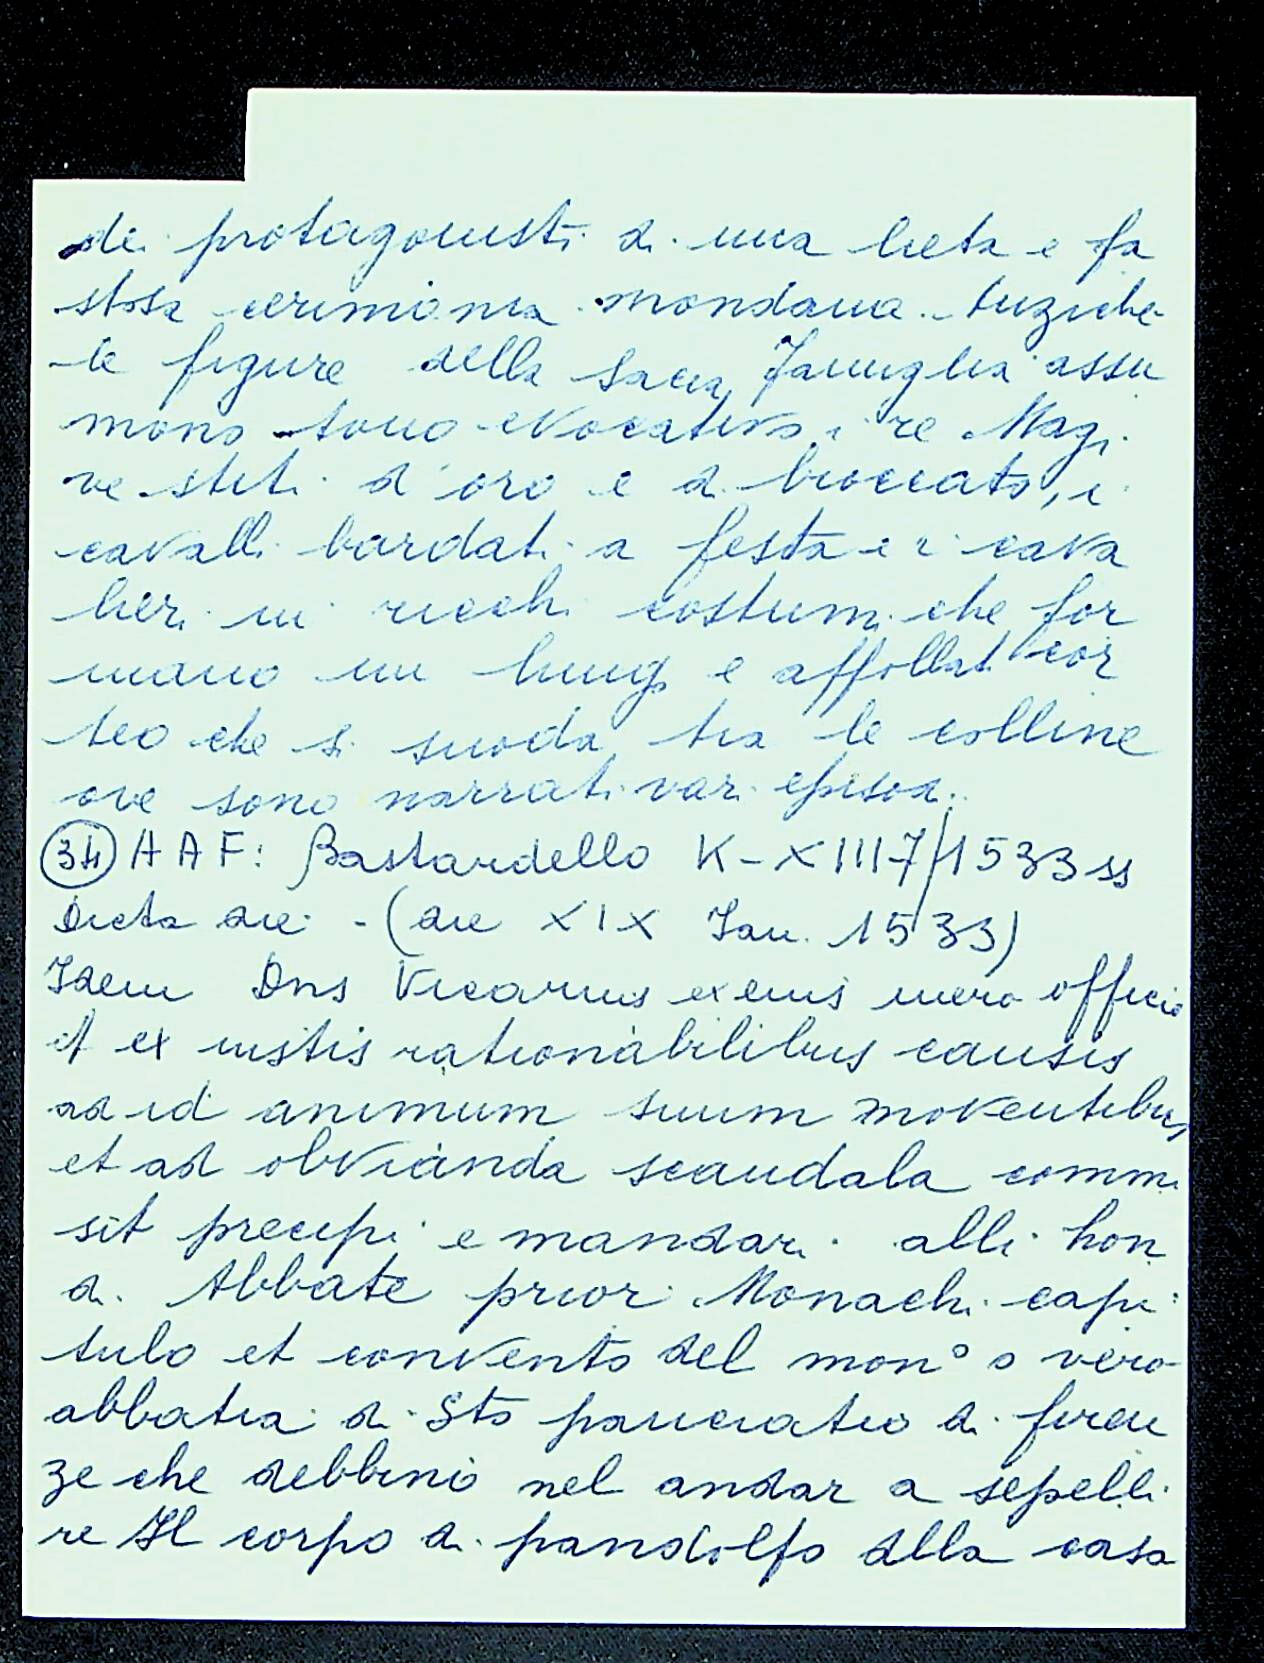 dei protagonisti di una lieta e fa
stosa cerimonia mondana. Anziche
le figure della Sacra Famiglia assu
mono tono evocativo i re Magi
vestiti d'oro e di broccato, i
cavalli bardati a festa e i cava
lieri in ricchi costumi che for
mano un lungo e affollato cor
teo che si snoda tra le colline
ove sono narrati vari episodi.
(34) AAF: Bastardello K-XIII7/1533 ss
Dicta die - (die XIX Jan. 1533)
Idem Dns Vicarius ex eius mero officio
et ex iustis rationabilibus causis
ad id animum suum moventibus
et ad obvianda scandala commi
sit precipi e mandari alli hon
di Abbate priori Monachi capi:
tulo et convento del mon° o vero
abbatia di Sto pancratio di firen
ze che debbino nel andar a sepelli
re Il corpo di pandolfo della casa